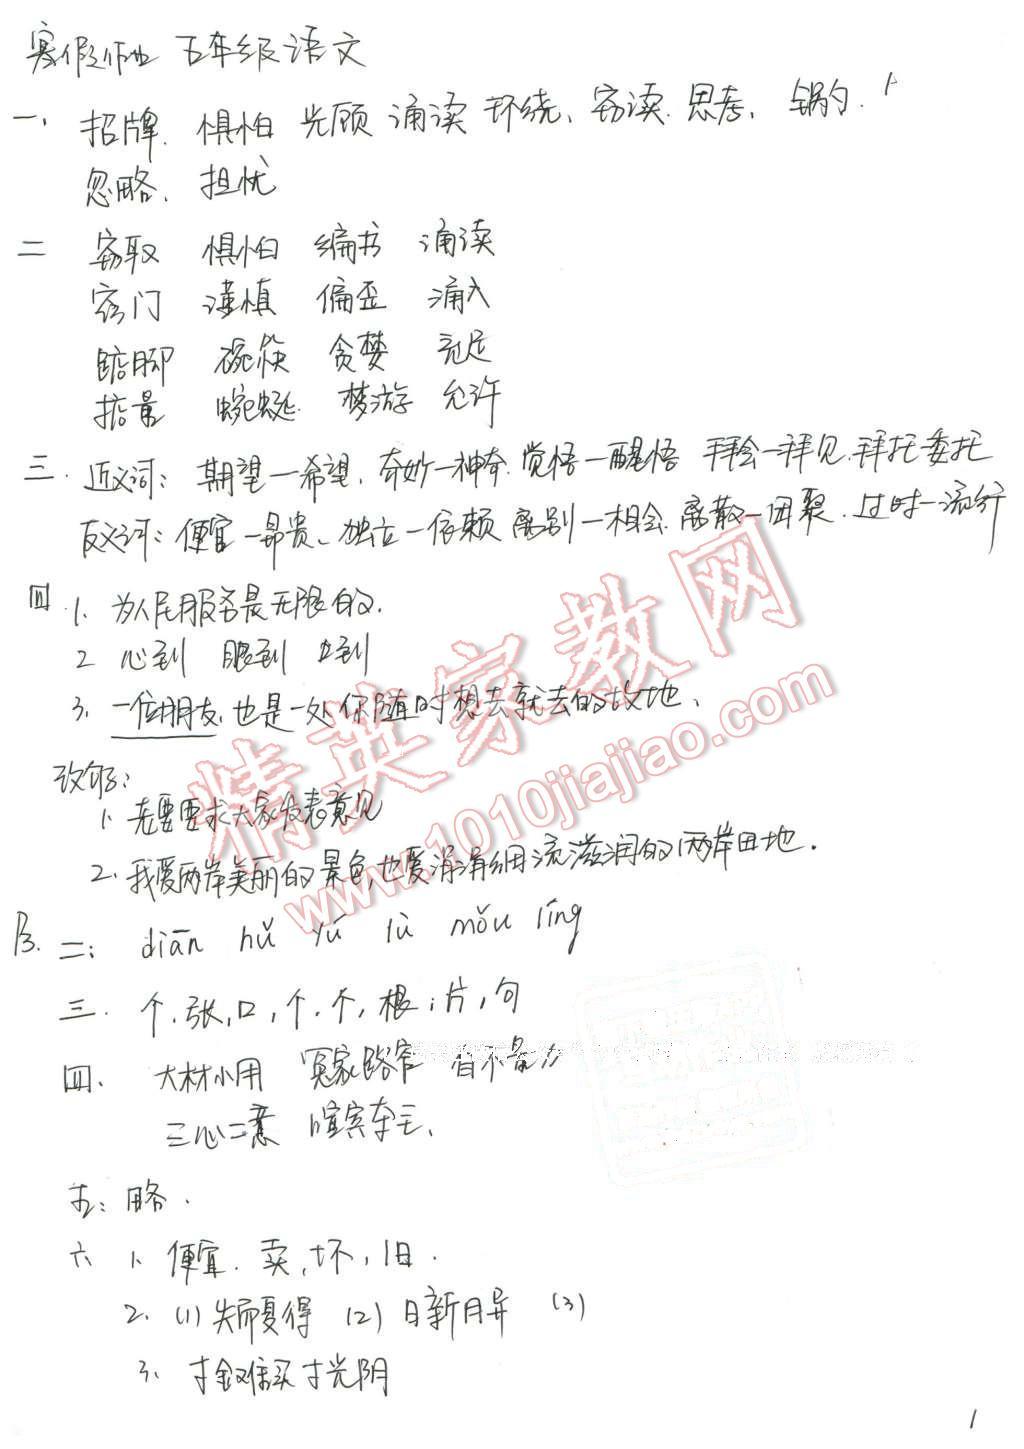 寒假作业 五年级语文
一、招牌. 惧怕 光顾 诵读 环绕、窃读. 思考, 锅勺.
忽略. 担忧
二 窃取 惧怕 编书 诵读
窍门 谨慎 偏歪 涌入
踮脚 碗筷 贪婪 充足
掂量 蜿蜒 梦游 允许
三. 近义词: 期望—希望. 奇妙—神奇. 觉悟—醒悟 拜会—拜见. 拜托 委托
反义词: 便宜—昂贵、独立—依赖 离别—相会. 离散—团聚. 过时—流行
四 1、为人民服务是无限的.
2 心到 眼到 口到
3、一位朋友, 也是一处你随时想去就去的故地.
改句:
1. 老要求大家发表意见
2. 我爱两岸美丽的景色, 也爱涓涓细流滋润的两岸田地.
B. 二: diān hǔ yú lù mǒu líng
三. 个, 张, 口, 个, 个, 根, 片, 句
四、大材小用 冤家路窄
三心二意 喧宾夺主.
五: 略.
六 1、便宜. 卖, 坏, 旧.
2. (1) 失而复得 (2) 日新月异 (3)
3. 寸金难买寸光阴
精英家教网
www.1010jiajiao.com
1